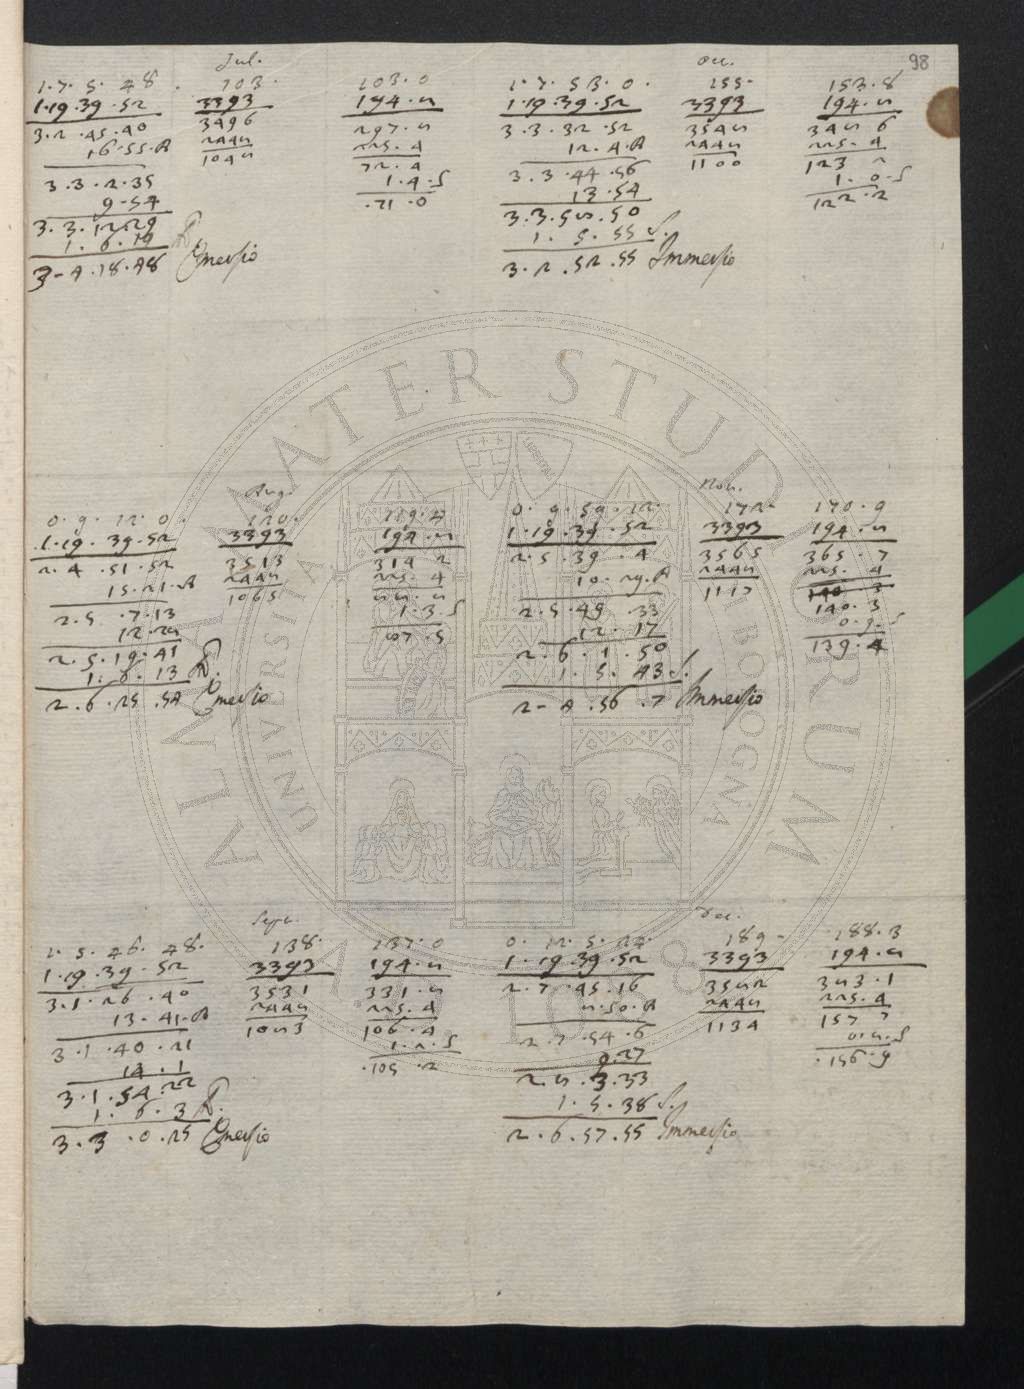 98
Jul.
1.7.5.48.
1.19.39.52
3.2.45.40
16.55.A
3.3.2.35
9.54
3.3.12.29
1.6.19 A
3-4.18.48 Emersio
103.
3393
3496
2448
1048
103.0
194.8
297.8
225.4
72.4
1.4.S
.71.0
Oct.
1.7.53.0.
1.19.39.52
3.3.32.52
12.4.A
3.3.44.56
13.54
3.3.58.50
1.5.55 S.
3.2.52.55 Immersio
155.
3393
3548
2448
1100
153.8
194.8
348 6
225.4
123 2
1.0.S
122.2
Aug.
0.9.12.0.
1.19.39.52
2.4.51.52
15.21.A
2.5.7.13
12.28
2.5.19.41
1.6.13 A.
2.6.25.54 Emersio
120.
3393
3513
2448
1065
119.4
194.8
314 2
225.4
88.8
1.3.S
87.5
Nov.
0.9.59.12.
1.19.39.52
2.5.39.4
10.29.A
2.5.49 33
12.17
2.6.1.50
1.5.43 S.
2-4.56.7 Immersio
172.
3393
3565
2448
1117
170.9
194.8
365.7
225.4
140 3
140.3
0.9.S
139.4
Sept.
1.5.46.48.
1.19.39.52
3.1.26.40
13.41.A
3.1.40.21
14.1
3.1.54.22
1.6.3 A.
3.3.0.25 Emersio
138.
3393
3531
2448
1083
137.0
194.8
331.8
225.4
106.4
1.2.S
.105.2
Dec.
0.12.5.24.
1.19.39.52
2.7.45.16
8.50.A
2.7.54.6
9.27
2.8.3.33
1.5.38 S.
2.6.57.55 Immersio
189-
3393
3582
2448
1134
188.3
194.8
383.1
225.4
157 7
0.8.S
.156.9
ALMA MATER STUDIORUM
UNIVERSITÀ DI BOLOGNA
A.D. 1088